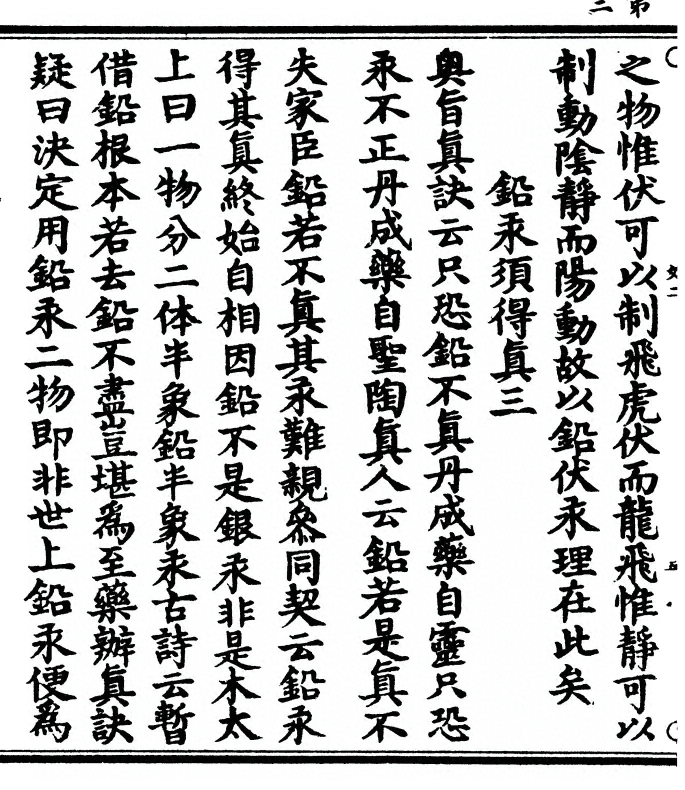 之物惟伏可以制飛虎伏而龍飛惟靜可以
制動陰靜而陽動故以鉛伏汞理在此矣
鉛汞須得真三
奥旨真訣云只恐鉛不真丹成藥自靈只恐
汞不正丹成藥自聖陶真人云鉛若是真不
失家臣鉛若不真其汞難親叅同契云鉛汞
得其真終始自相因鉛不是銀汞非是木太
上曰一物分二体半象鉛半象汞古詩云暫
借鉛根本若去鉛不盡豈堪爲至藥辦真訣
疑曰決定用鉛汞二物即非世上鉛汞便爲